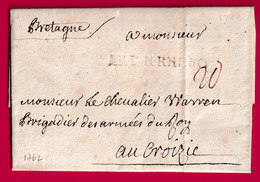 Bretagne
a monsieur
20
monsieur Le chevalier Warren
Brigadier des armées du Roy
au Croizic
1762